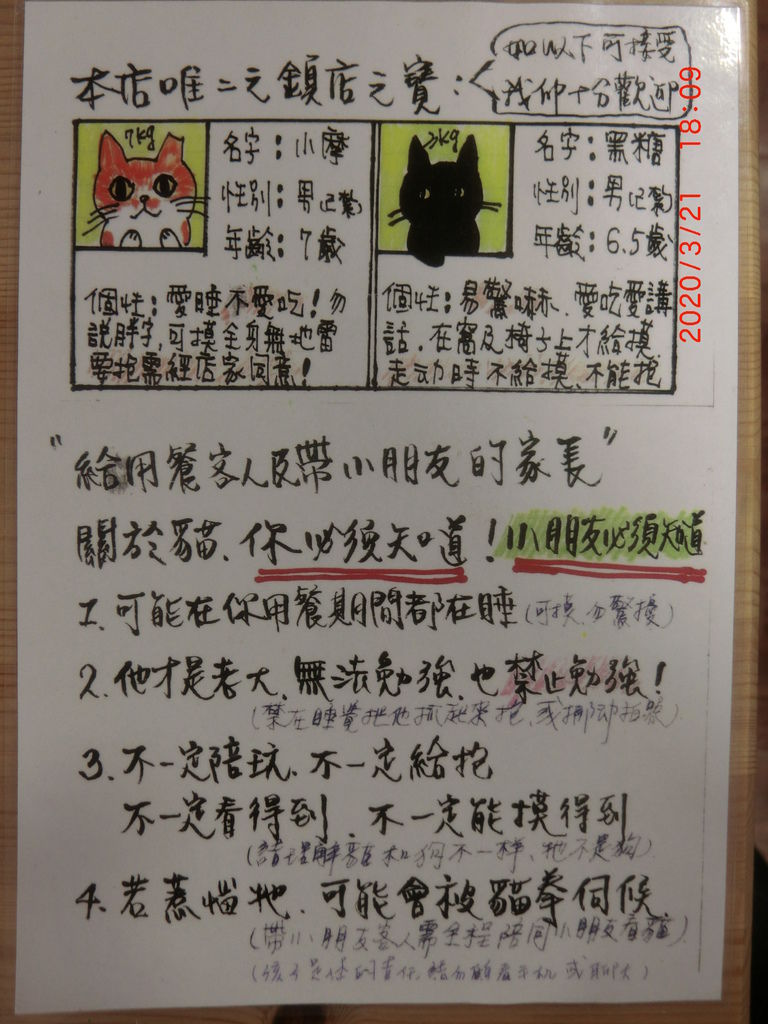 如以下可接受
我们十分歡迎
本店唯二之鎮店之寶：
7kg
名字：小摩
性別：男已紮
年齡：7歲
個性：愛睡不愛吃！勿
說胖字，可摸全身無地雷
要抱需經店家同意！
3kg
名字：黑糖
性別：男已紮
年齡：6.5歲
個性：易驚嚇、愛吃愛講
話，在窩及椅子上才給摸
走动時不給摸、不能抱
2020/3/21 18:09
"給用餐客人及帶小朋友的家長"
關於貓、你必須知道！小朋友必須知道
1. 可能在你用餐期間都在睡(可摸、勿驚擾)
2. 他才是老大、無法勉強、也禁止勉強！
(禁在睡覺把他抓起來抱、或挪动拍照)
3. 不一定陪玩、不一定給抱
不一定看得到、不一定能摸得到
(請理解貓和狗不一樣、牠不是狗)
4. 若惹惱牠、可能會被貓拳伺候
(帶小朋友客人需全程陪同小朋友看貓)
(孩子是你的責任請勿顧看手机或聊天)